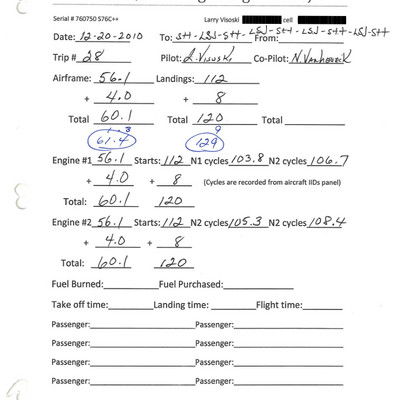 Serial # 760750 S76C++ Larry Visoski cell
Date: 12-20-2010 To: STT-LSJ-STT-LSJ-STT-LSJ-STT-LSJ-STT From:
Trip # 28 Pilot: L. Visoski Co-Pilot: N. Vanhoueck
Airframe: 56.1 Landings: 112
+ 4.0 + 8
Total 60.1 Total 120 Total
1.3 9
61.4 129
Engine #1 56.1 Starts: 112 N1 cycles 103.8 N2 cycles 106.7
+ 4.0 + 8 (Cycles are recorded from aircraft IIDs panel)
Total: 60.1 120
Engine #2 56.1 Starts: 112 N2 cycles 105.3 N2 cycles 108.4
+ 4.0 + 8
Total: 60.1 120
Fuel Burned: Fuel Purchased:
Take off time: Landing time: Flight time:
Passenger: Passenger:
Passenger: Passenger:
Passenger: Passenger:
Passenger: Passenger: